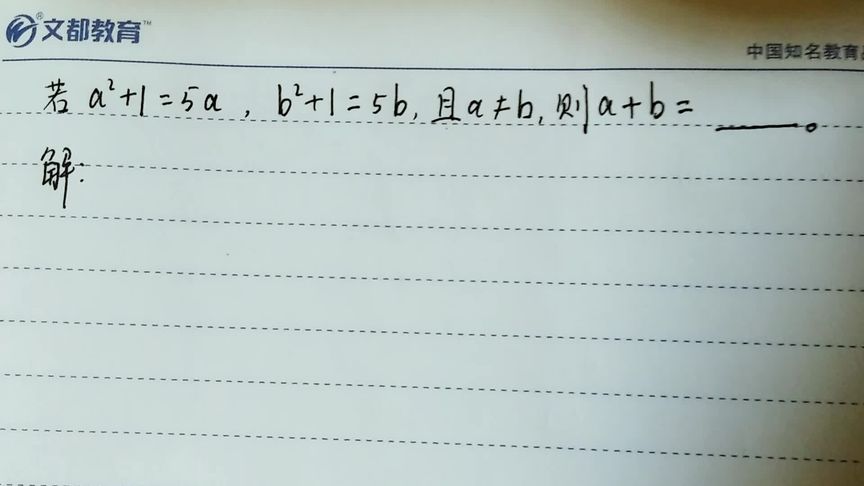 文都教育™
中国知名教育
若 a²+1=5a, b²+1=5b, 且a≠b, 则a+b= ____。
解: